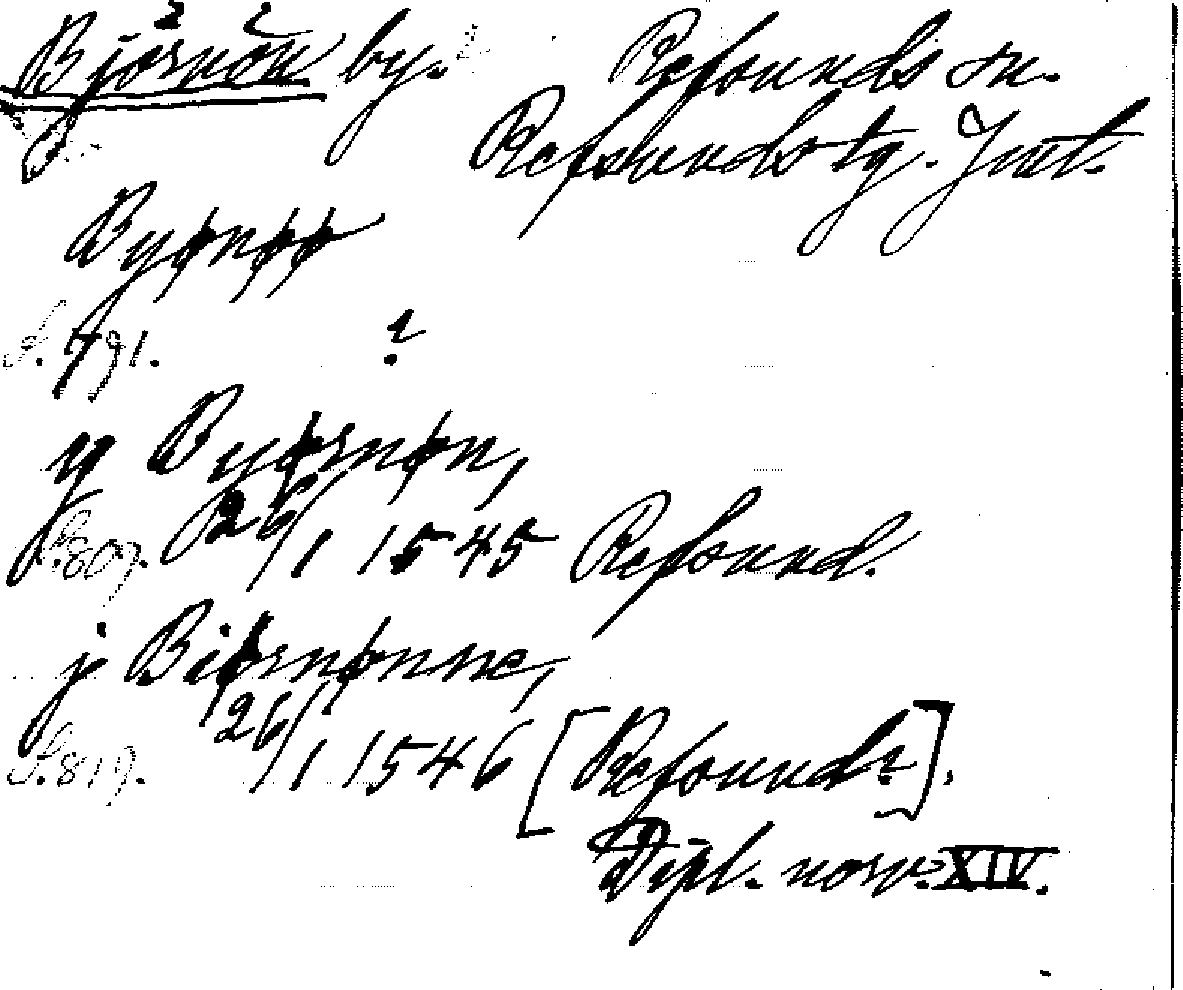 Björnön by. Refsunds sn.
Refsunds tg. Jmtl.
Byønøø
S. 791. ?
y Byørnøn,
S. 809. 26/1 1545 Refsund.
j Biørnønne,
S. 819. 26/1 1546 [Refsund?].
Dipl. norv. XIV.